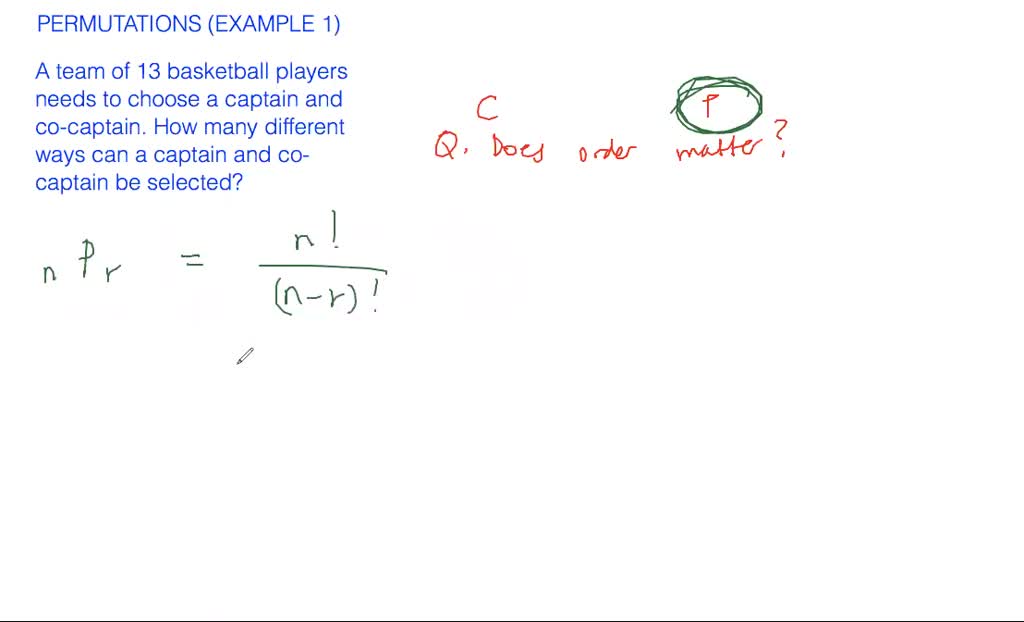 PERMUTATIONS (EXAMPLE 1)
A team of 13 basketball players
needs to choose a captain and
co-captain. How many different
ways can a captain and co-
captain be selected?
C P
Q. Does order matter?
n P r = n!
(n-r)!